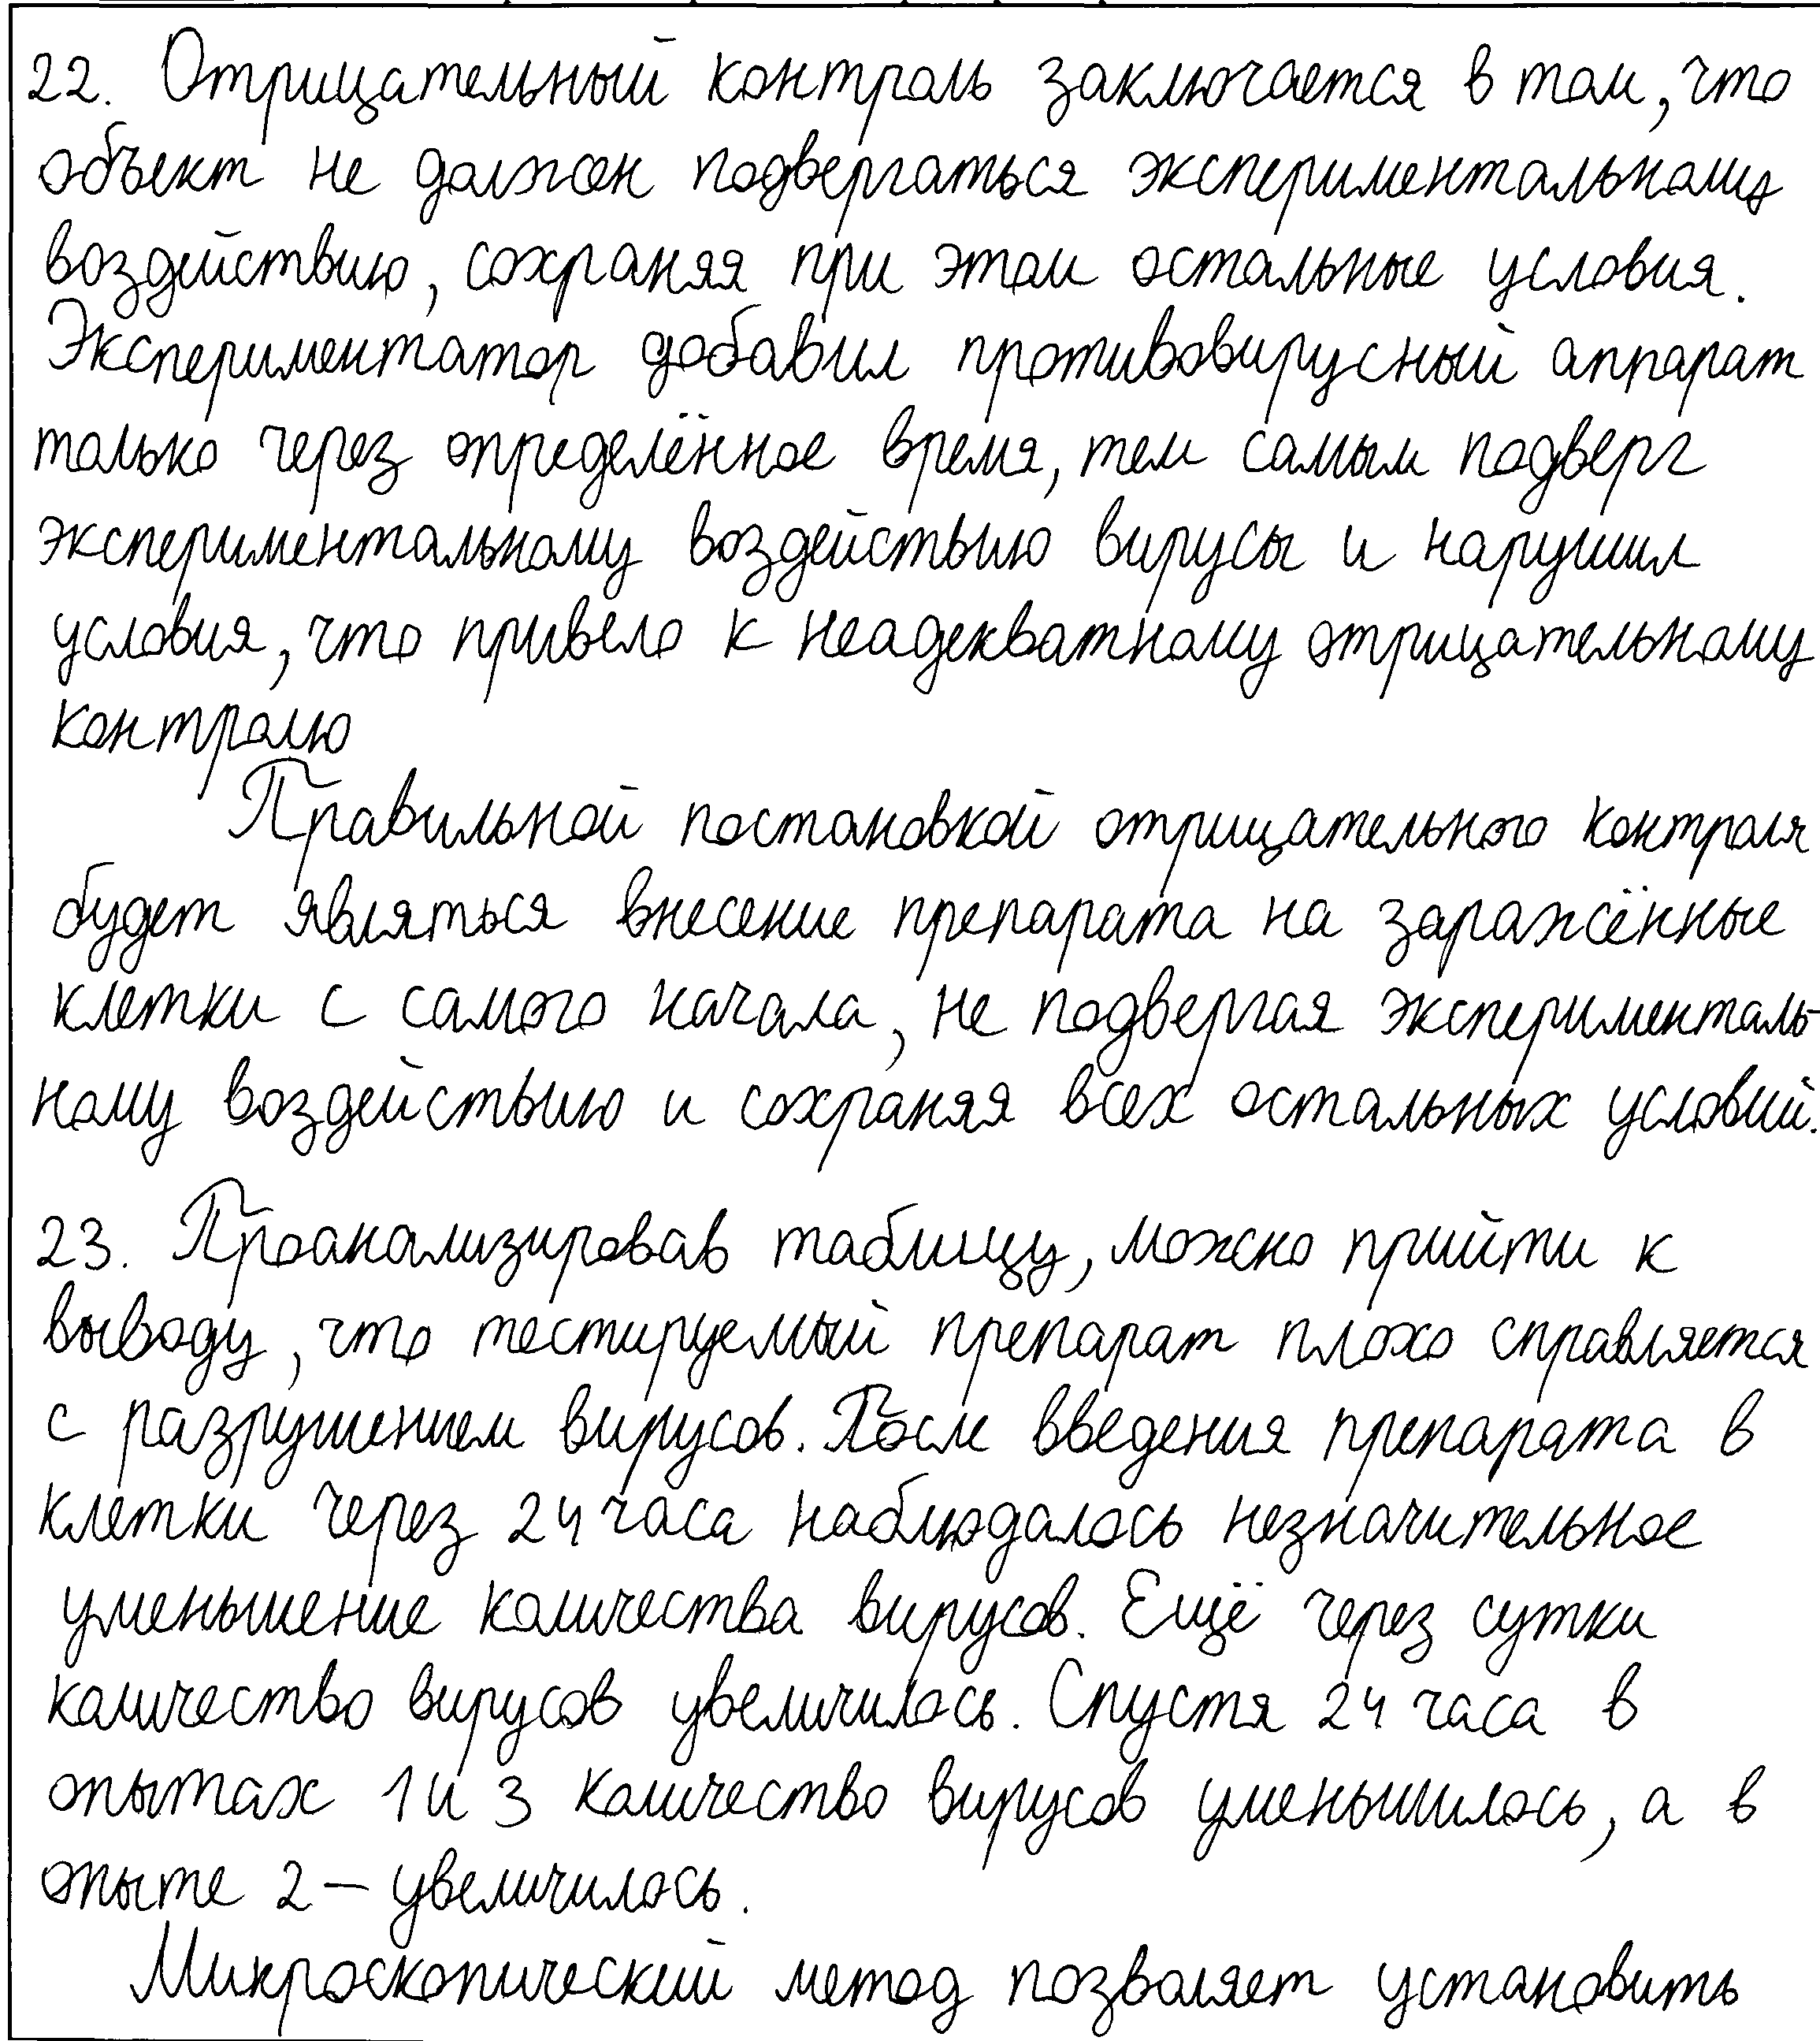 22. Отрицательный контроль заключается в том, что
объект не должен подвергаться экспериментальному
воздействию, сохраняя при этом остальные условия.
Экспериментатор добавил противовирусный аппарат
только через определённое время, тем самым подверг
экспериментальному воздействию вирусы и нарушил
условия, что привело к неадекватному отрицательному
контролю
Правильной постановкой отрицательного контроля
будет являться внесение препарата на заражённые
клетки с самого начала, не подвергая эксперименталь-
ному воздействию и сохраняя всех остальных условий.
23. Проанализировав таблицу, можно прийти к
выводу, что тестируемый препарат плохо справляется
с разрушением вирусов. После введения препарата в
клетки через 24 часа наблюдалось незначительное
уменьшение количества вирусов. Ещё через сутки
количество вирусов увеличилось. Спустя 24 часа в
опытах 1 и 3 количество вирусов уменьшилось, а в
опыте 2 – увеличилось.
Микроскопический метод позволяет установить